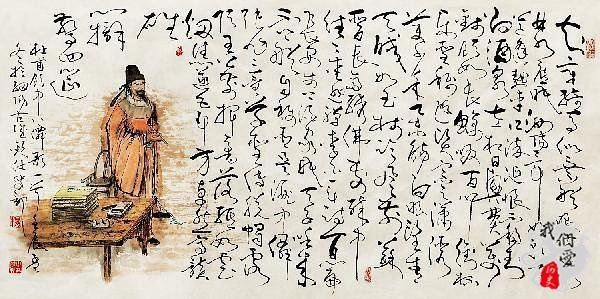 知章騎馬似乘船眼
花落井水底眠汝陽三斗
始朝天道逢麴車口流涎恨不移封
向酒泉左相日興費萬
錢飲如長鯨吸百川銜杯
樂聖稱避賢宗之瀟灑
美少年舉觴白眼望青
天皎如玉樹臨風前蘇
晉長齋繡佛前醉中
往往愛逃禪李白一斗詩百篇
長安市上酒家眠天子呼來
不上船自稱臣是酒中仙
張旭三杯草聖傳脫帽露
頂王公前揮毫落紙如雲
煙焦遂五斗方卓然高談
雄
辯
驚四筵
杜甫飲中八仙歌一首壬辰
我们爱
历史